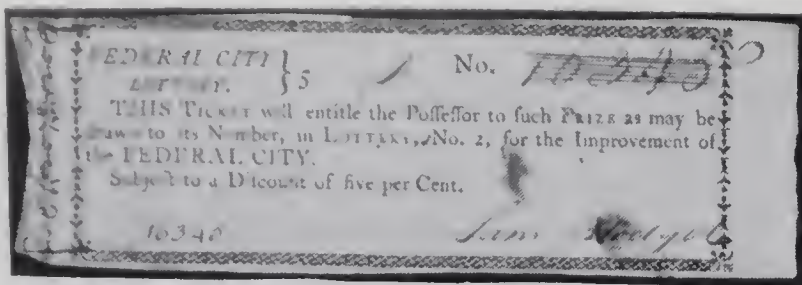 FEDERAL CITY
LOTTERY. } 5 No. 10340
THIS TICKET will entitle the Poſſeſſor to ſuch PRIZE as may be
drawn to its Number, in LOTTERY, No. 2, for the Improvement of
the FEDERAL CITY.
Subject to a Diſcount of five per Cent.
10340 Sam Blodget